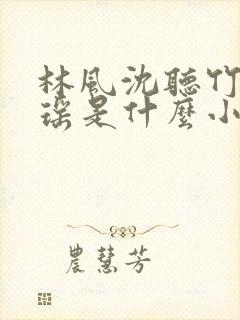 林風沈聽竹
瑤是什麼小
農慧芳